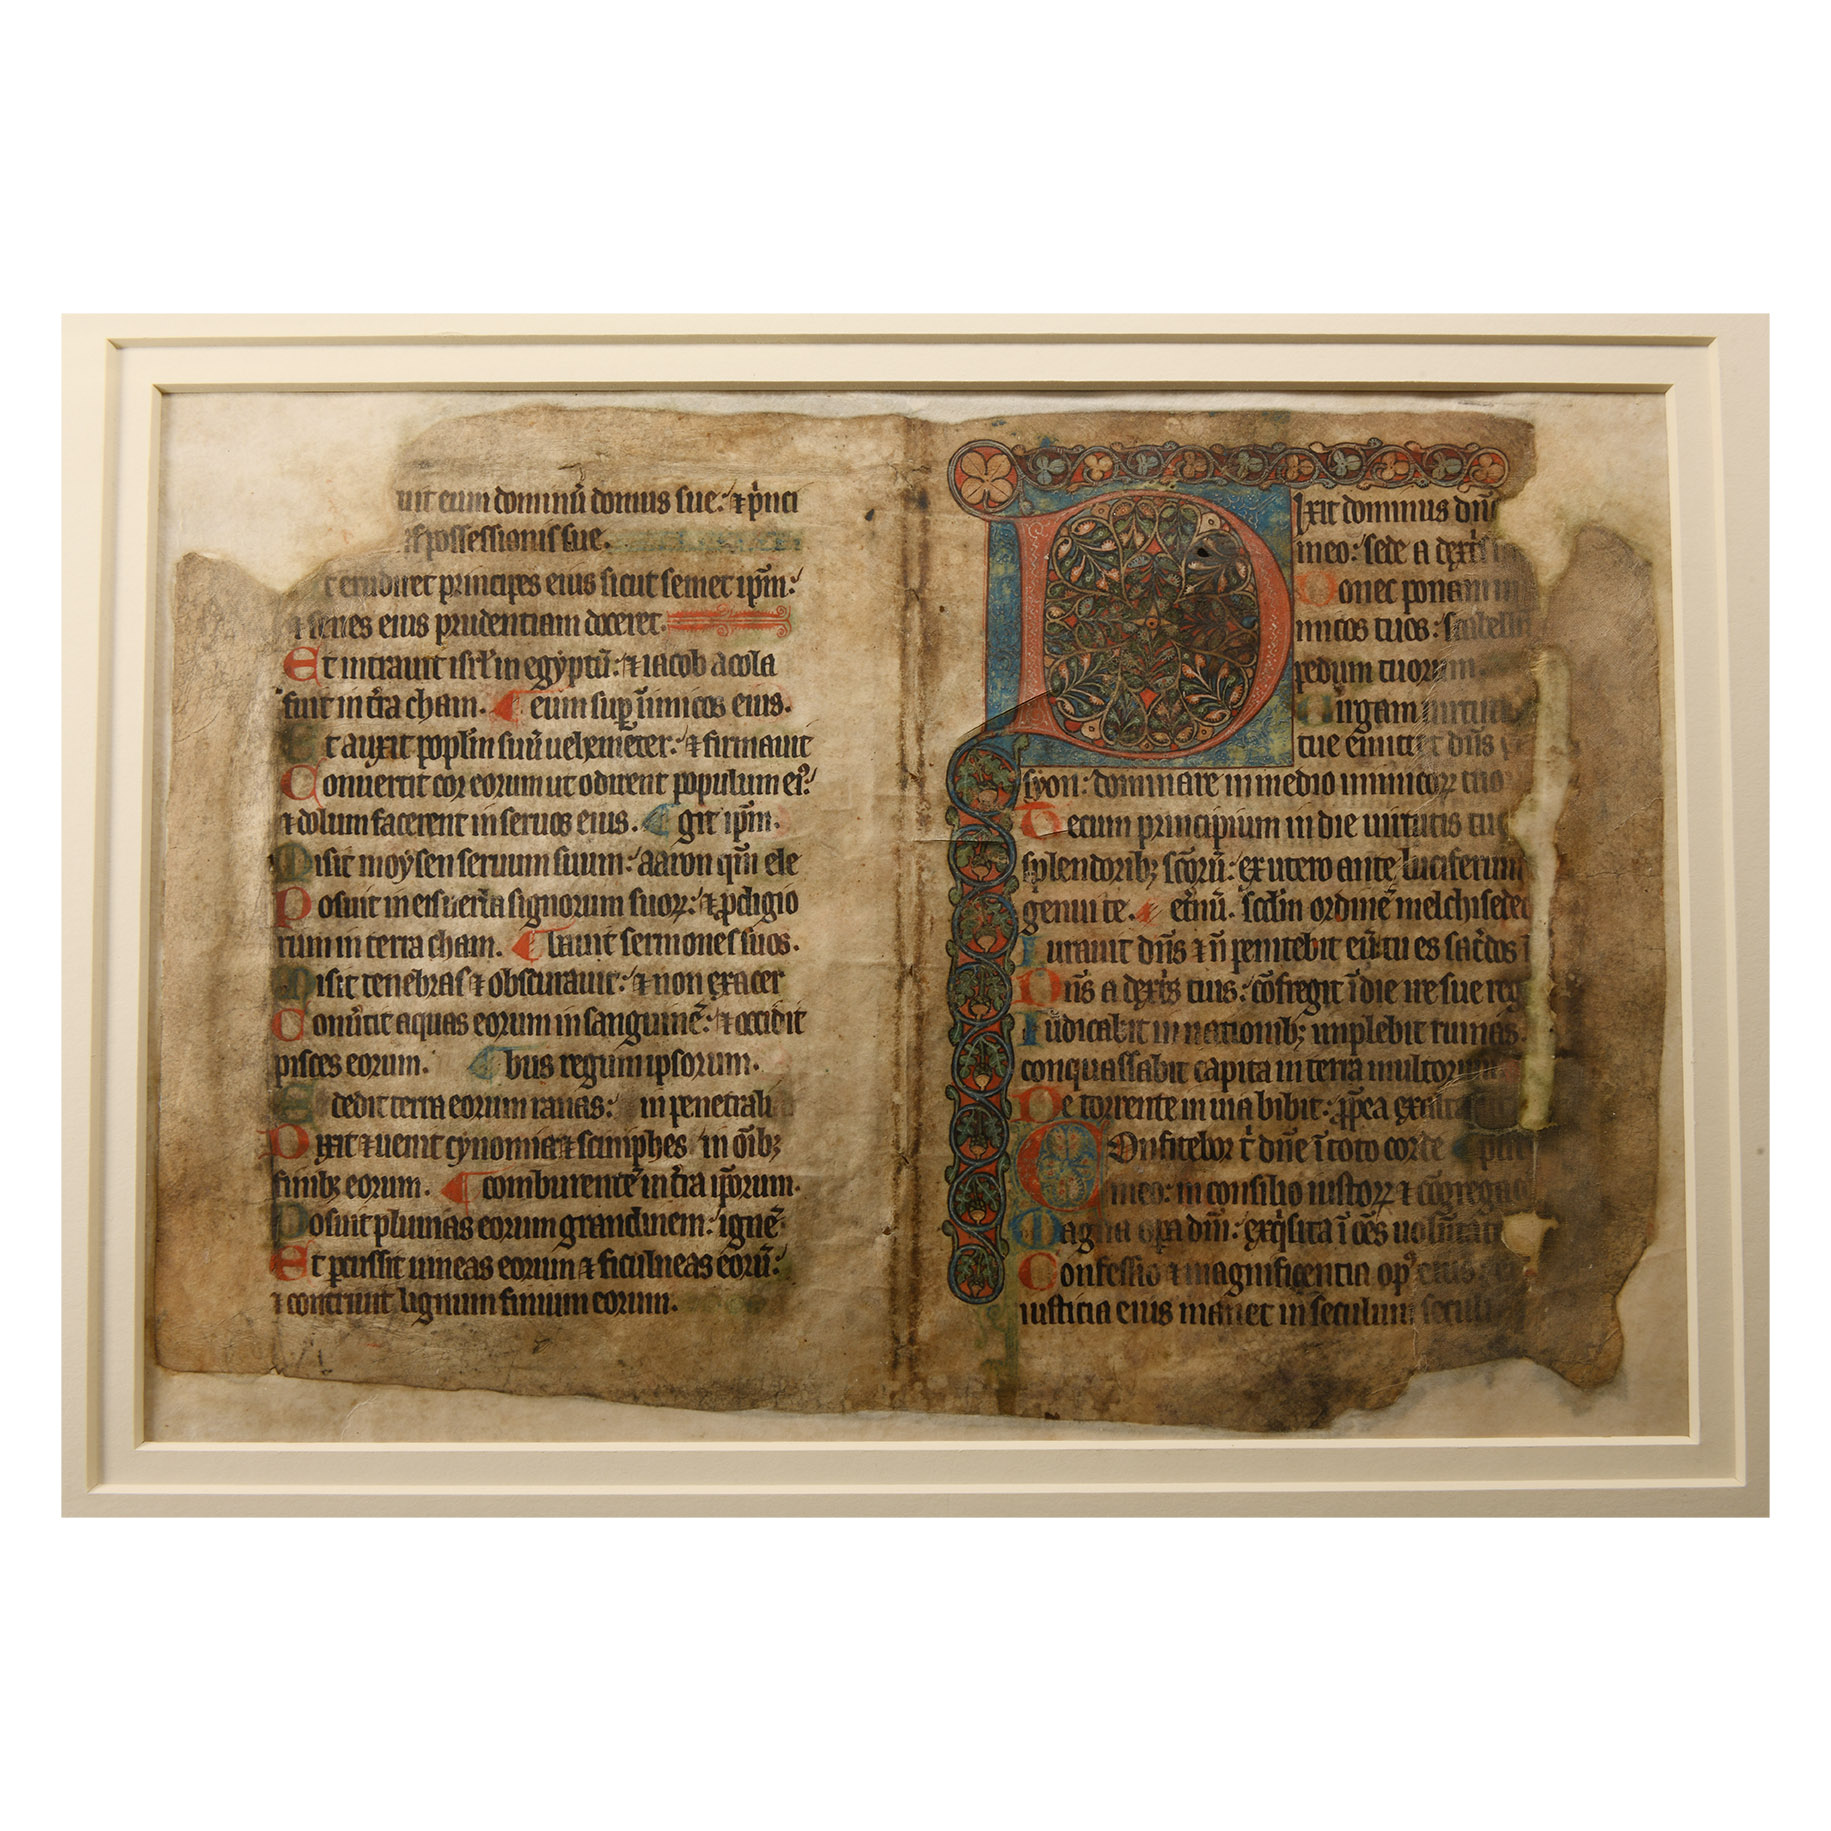 uit eum dominū domus sue: ⁊ p̄nci
possessionis sue.
t erudiret principes eius sicut semet ip̄m:
⁊ senes eius prudentiam doceret.
Et intrauit isrł in egyptū: ⁊ iacob acola
fuit in t̄ra cham. eum sup̄ inimicos eius.
Et auxit popl̄m suū uehemēter: ⁊ firmauit
Conuertit cor eorum ut odirent populum ei⁹:
⁊ dolum facerent in seruos eius. git ip̄m.
Misit moysen seruum suum: aaron quē ele
Posuit in eis uerba signorum suoꝝ: ⁊ ꝓdigio
rum in terra cham. bauit sermones suos.
Misit tenebras ⁊ obscurauit: ⁊ non exacer
Conūtit aquas eorum in sanguinē: ⁊ occidit
pisces eorum. bus regum ipsorum.
Ededit terra eorum ranas: in penetrali
Dixit ⁊ uenit cynomia ⁊ sciniphes in oīb;
finib; eorum. comburentē in t̄ra ip̄orum.
Posuit pluuias eorum grandinem: ignē
Et ꝑcussit uineas eorum ⁊ ficulneas eorū:
⁊ contriuit lignum finium eorum.
Dixit dominus dn̄o
meo: sede a dext̄s
Donec ponam in
imicos tuos: scabellū
pedum tuorum.
Uirgam uirtut
tue emittet dn̄s
syon: dominare in medio inimicoꝝ tuo
Tecum principium in die uirtutis tue
splendorib; sc̄orū: ex utero ante luciferum
genui te. et̄nū. sc̄dm ordinē melchisedec
Iurauit dn̄s ⁊ n̄ penitebit eū: tu es sac̄dos ī
Dn̄s a dext̄s tuis: cōfregit ī die ire sue reg
Iudicabit in nationib; implebit ruinas
conquassabit capita in terra multorum
De torrente in uia bibit: ꝓp̄ea exalta
Confitebor t̄ dn̄e ī toto corde
meo: in consilio iustoꝝ ⁊ cōgregac
Magna oꝑa dn̄i: exq̄sita ī oēs uolūtat
Confessio ⁊ magnificentia op⁹ eius:
iusticia eius manet in seculum seculi